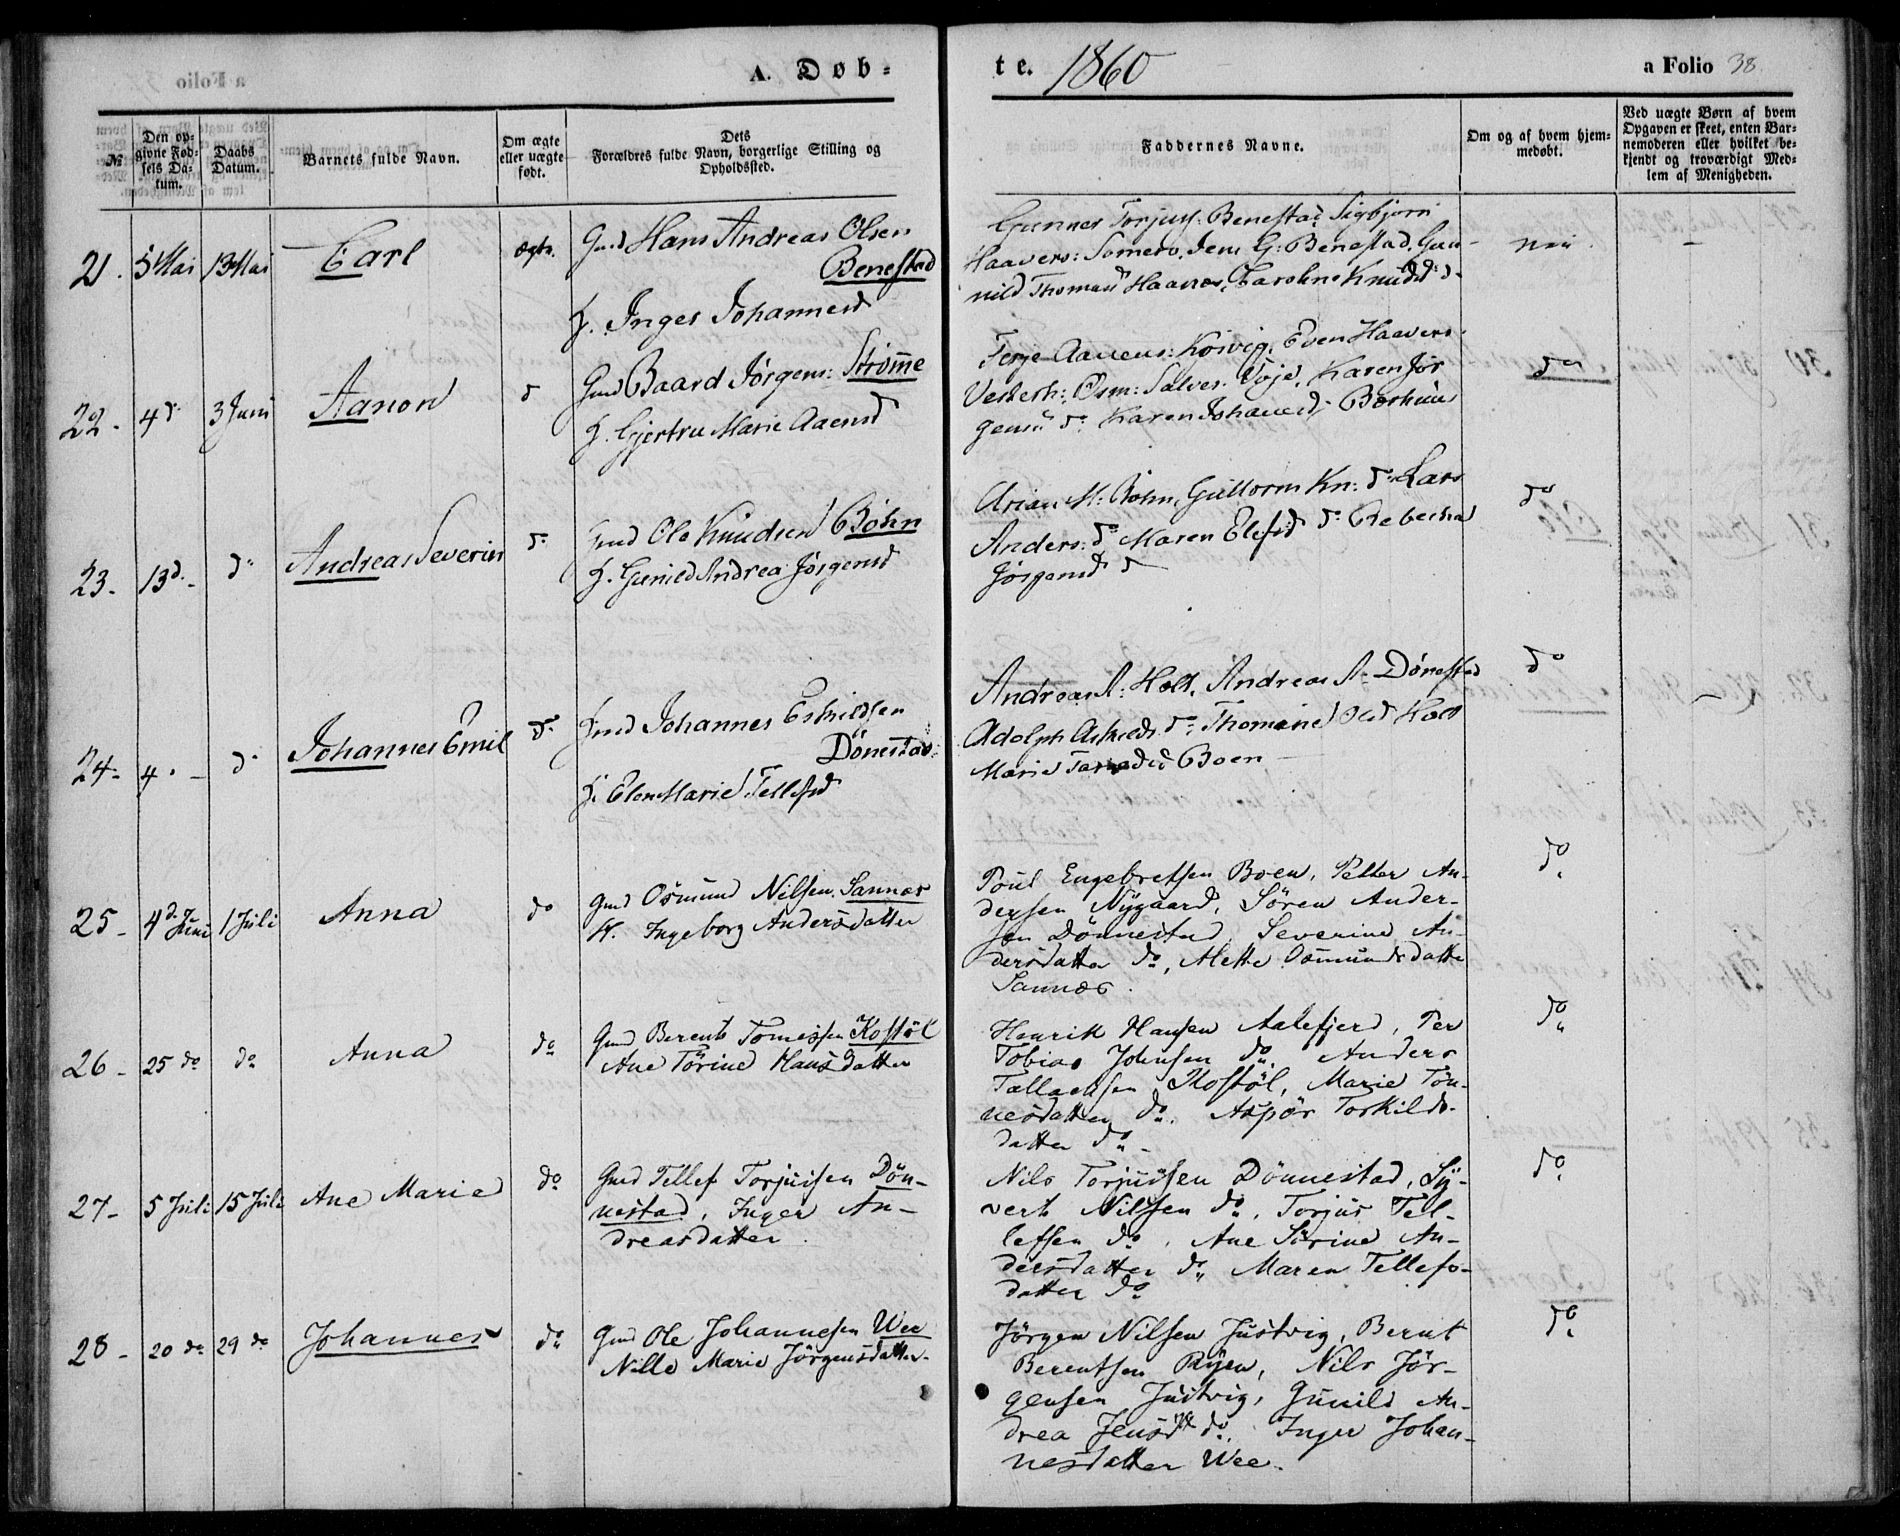 A. Døb=
te. 1860
a Folio 38
№
Den op=
givne Fød=
sels Da=
tum.
Daabs
Datum.
Barnets fulde Navn.
Om ægte
eller uægte
født.
Dets
Forældres fulde Navn, borgerlige Stilling og
Opholdssted.
Faddernes Navne.
Om og af hvem hjem=
medøbt.
Ved uægte Børn af hvem
Opgaven er skeet, enten Bar=
nemoderen eller hvilket be=
kjendt og troværdigt Med=
lem af Menigheden.
21. 5 Mai 13 Mai Carl ægte. Gmd Hans Andreas Olsen
Benestad
H. Inger Johannesd
Gunnes Torjus: Benestad Sigbjørn
Haavers: Somero, Jens G: Benestad, Gun-
nild Thomasd Haanes, Caroline Knudsd do
nei -
22- 4 do 3 Juni Aanon do Gmd Baard Jørgens: Strømme
H. Gjertru Marie Aanensd
Terje Aanens: Kosvig, Even Haavers:
Osm: Salves: Voje, Karen Jør
gensd do Karen Johannesd
do
23- 13 do- do Andreas Severin do Gmd Ole Knudsen Bøhn
H. Gunild Andrea Jørgensd
M: Bøhn, Guttorm Kn: do Lars
Anders: do Maren Elefsd do
Jørgensd do
do
24- 4. - do Johannes Emil do Gmd Johannes Eskildsen
Dønestad:
H: Elen Marie Tellefsd
Andreas A: Holt, Andreas A- Dønestad
Adolph do Thomine Olsd Holt
Marie Boen -
do
25- 4d Juni 1 Juli Anna do Gmd Osmund Nilsen Sannæs
H. Ingeborg Andersdatter
Poul Engebretsen Boen, Petter An-
dersen Nygaard, Sören Ander-
sen Dönnestad, Severine An-
dersdatter do, Mette Osmundsdatter
Sannæs.
do
26- 25 do do Anna do Gmd Berent Tomessen Kostöl
Ane Törine Hansdatter
Henrik Hansen Aalefjerd, Per
Tobias Johnsen do. Anders
Tallaksen Kostöl, Marie Tön-
nesdatter do. Aspör Torkilds-
datter do -
do
27- 5 Juli 15 Juli Ane Marie do Gmd Tellef Torjusen Dön-
nestad, Inger An-
dreasdatter.
Nils Torjusen Dönnestad, Sy-
vert Nilsen do, Torjus Tel-
lefsen do, Ane Sörine An-
dersdatter do Maren Tellefs-
datter do
do
28- 20 do 29 do Johannes do Gmd Ole Johannesen Wee
Nille Marie Jörgensdatter-
Jörgen Nilsen Justvig, Bernt
Berentsen Ryen, Nils Jör-
gensen Justvig, Gunild An-
drea Jensd do. Inger Johan-
nesdatter Wee.
do